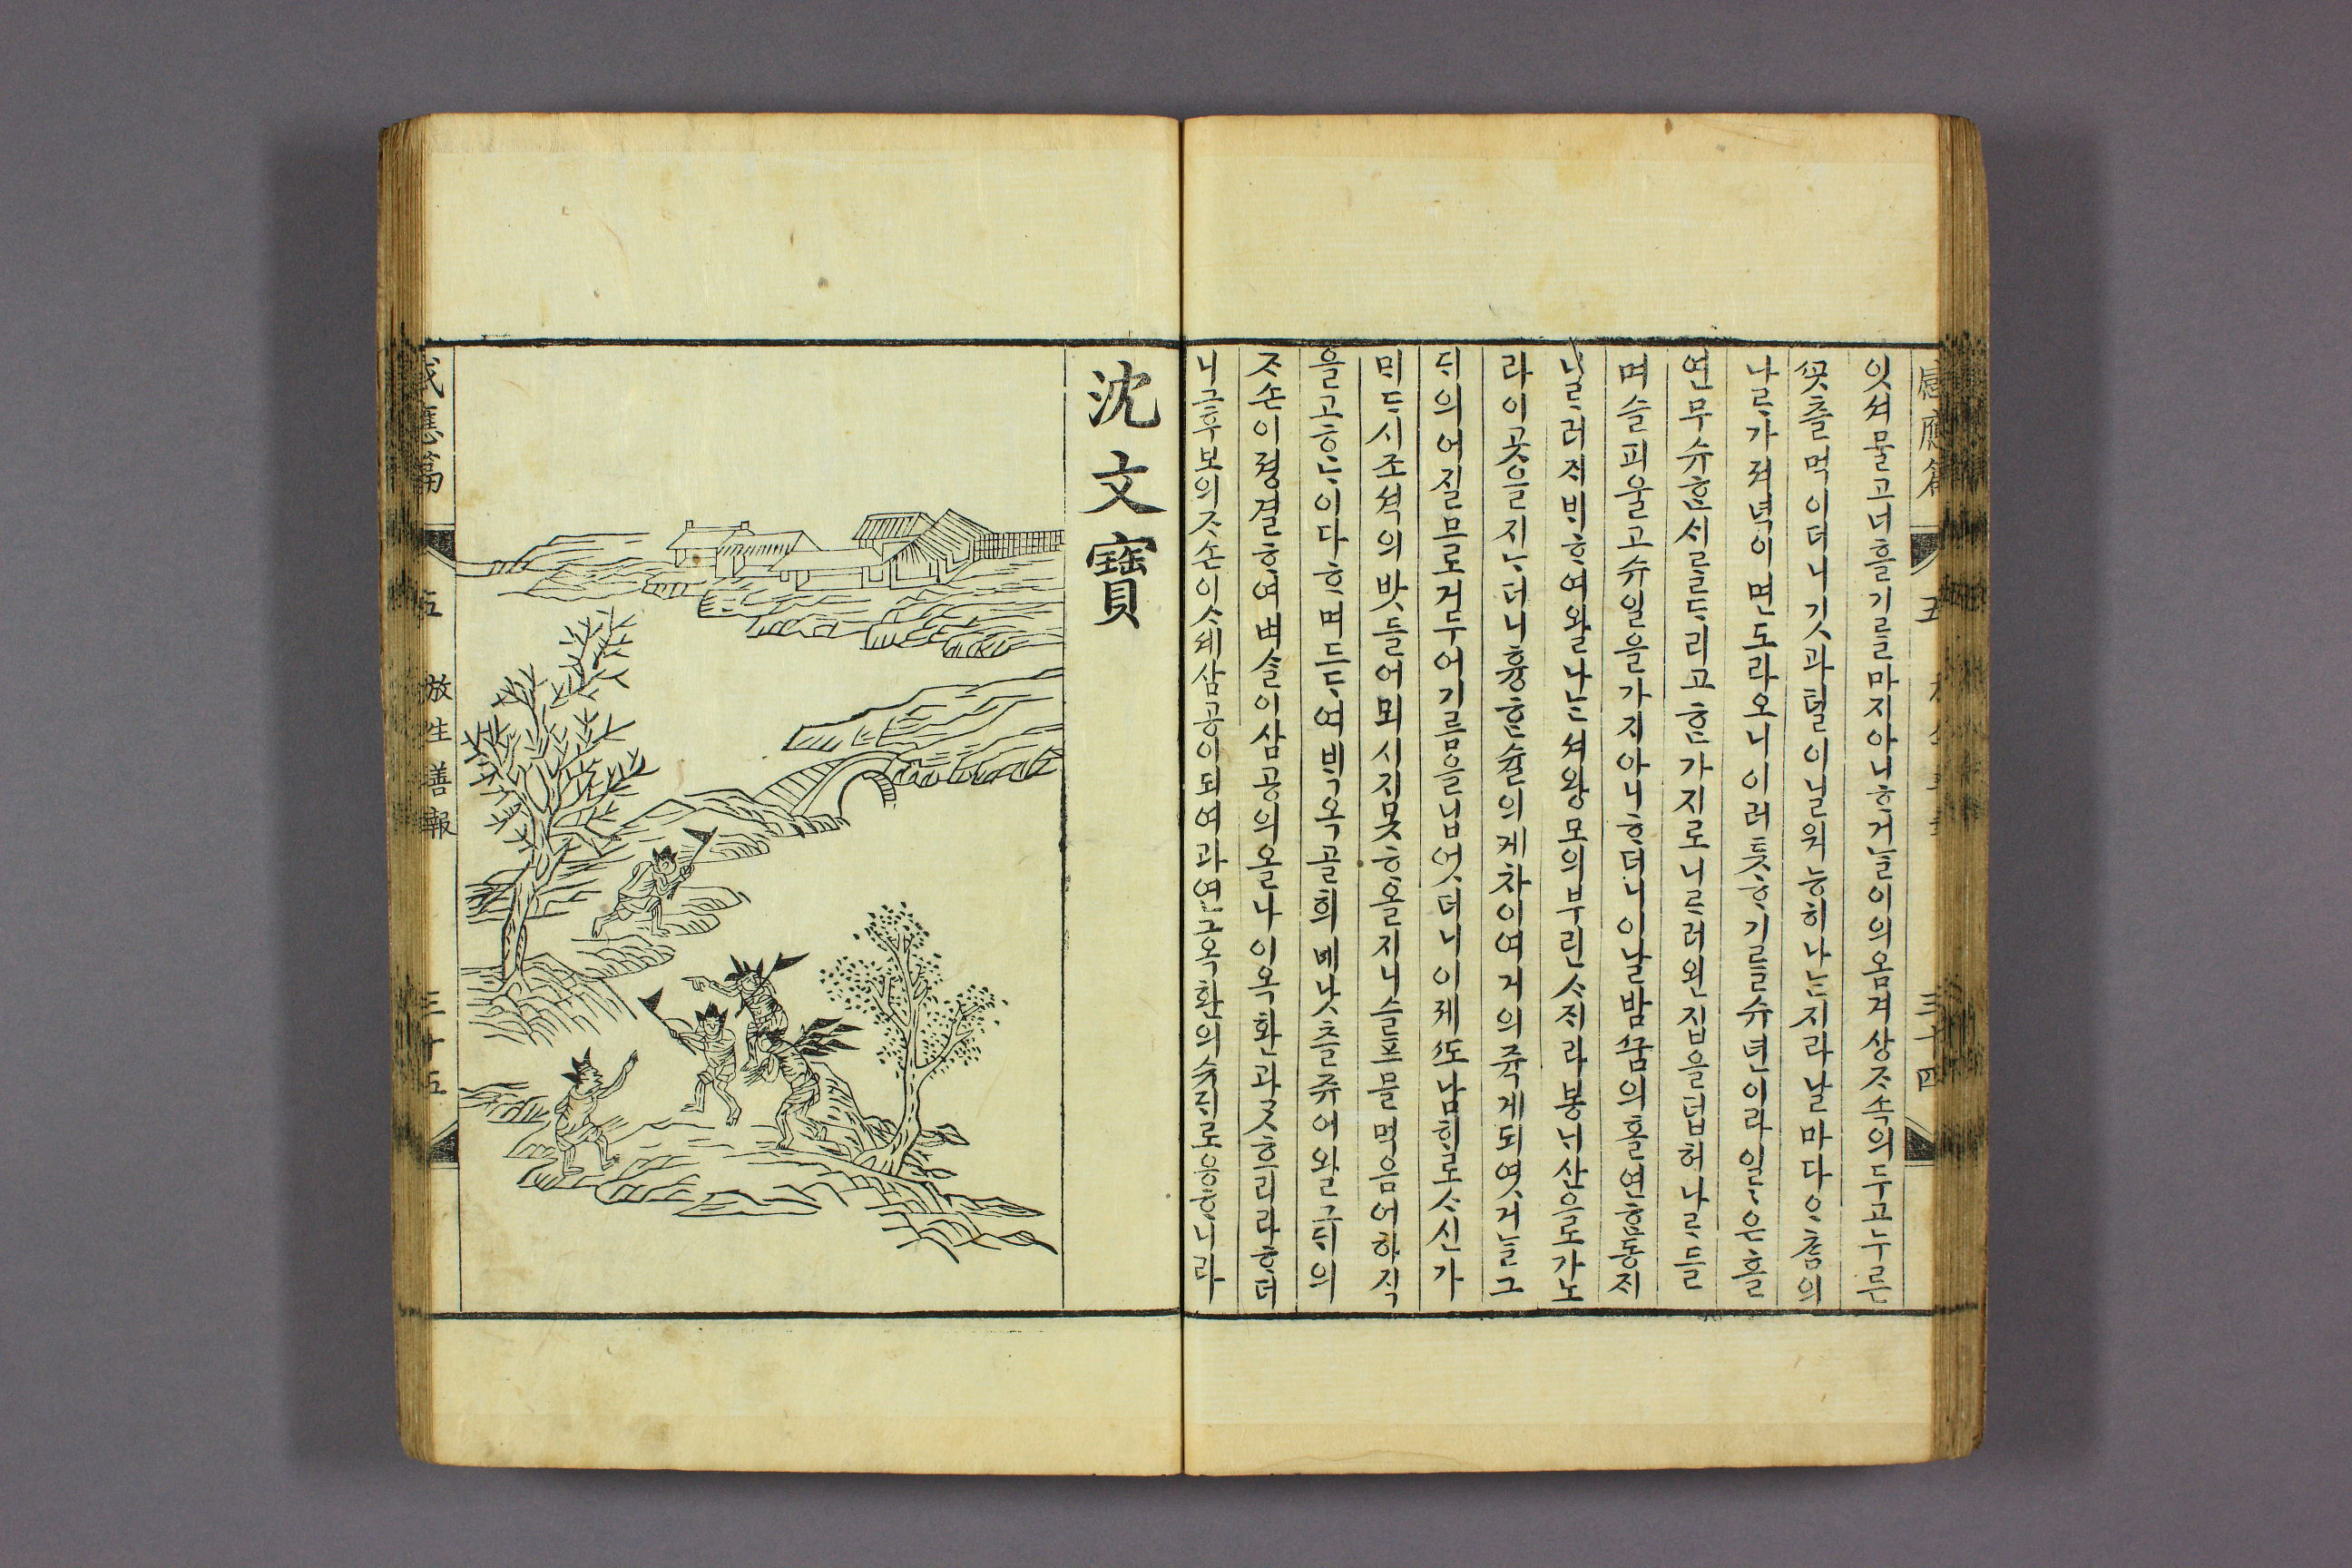 感應篇 五 三十四
잇셔물고더흘기ᄅᆞᆯ마지아니ᄒᆞ거ᄂᆞᆯ이의옴겨상ᄌᆞ속의두고누른
ᄭᅩᆺ츨먹이더니깃과털이닐워능히나ᄂᆞᆫ지라날마다ᄋᆞᄎᆞᆷ의
나ᄅᆞ가져녁이면도라오니이러틋ᄒᆞ기ᄅᆞᆯ슈년이라일일은홀
연무슈ᄒᆞᆫᄉᆡᄅᆞᆯᄃᆞ리고ᄒᆞᆫ가지로니ᄅᆞ러왼집을덥허나ᄅᆞ들
며슬피울고슈일을가지아니ᄒᆞ더니이날밤ᄭᅮᆷ의홀연ᄒᆞᆫ동ᄌᆡ
닐러ᄌᆡᄇᆡᄒᆞ여왈나ᄂᆞᆫ셔왕모의부린ᄉᆞᄌᆡ라봉ᄂᆡ산으로가노
라이곳을지나더니흉ᄒᆞᆫ슐의게차이여거의쥭게되엿거ᄂᆞᆯ그
ᄃᆡ의어질므로거두어기름을닙엇더니이제ᄯᅩ남ᄒᆡ로ᄉᆞ신가
ᄆᆡᄃᆞ시조셕의밧들어뫼시지못ᄒᆞ올지니슬프믈먹음어하직
을고ᄒᆞᄂᆞ이다ᄒᆞ며드ᄃᆡ여ᄇᆡᆨ옥골희네낫츨쥬어왈그ᄃᆡ의
ᄌᆞ손이졍결ᄒᆞ여벼슬이삼공의올나이옥환과ᄀᆞᆺᄒᆞ리라ᄒᆞ더
니그후보의ᄌᆞ손이ᄉᆞ셰삼공이되여과연그옥환의슷ᄌᆞ로응ᄒᆞ니라
沈文寶
感應篇 五 放生善報 三十五